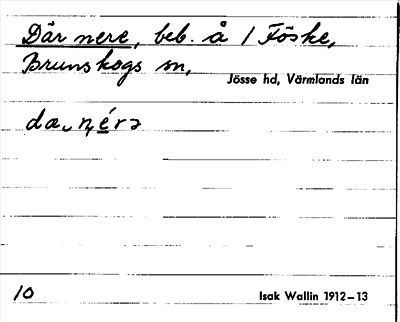 Där nere, beb. å 1 Föske,
Brunskogs sn,
Jösse hd, Värmlands län
da n, érə
10
Isak Wallin 1912–13